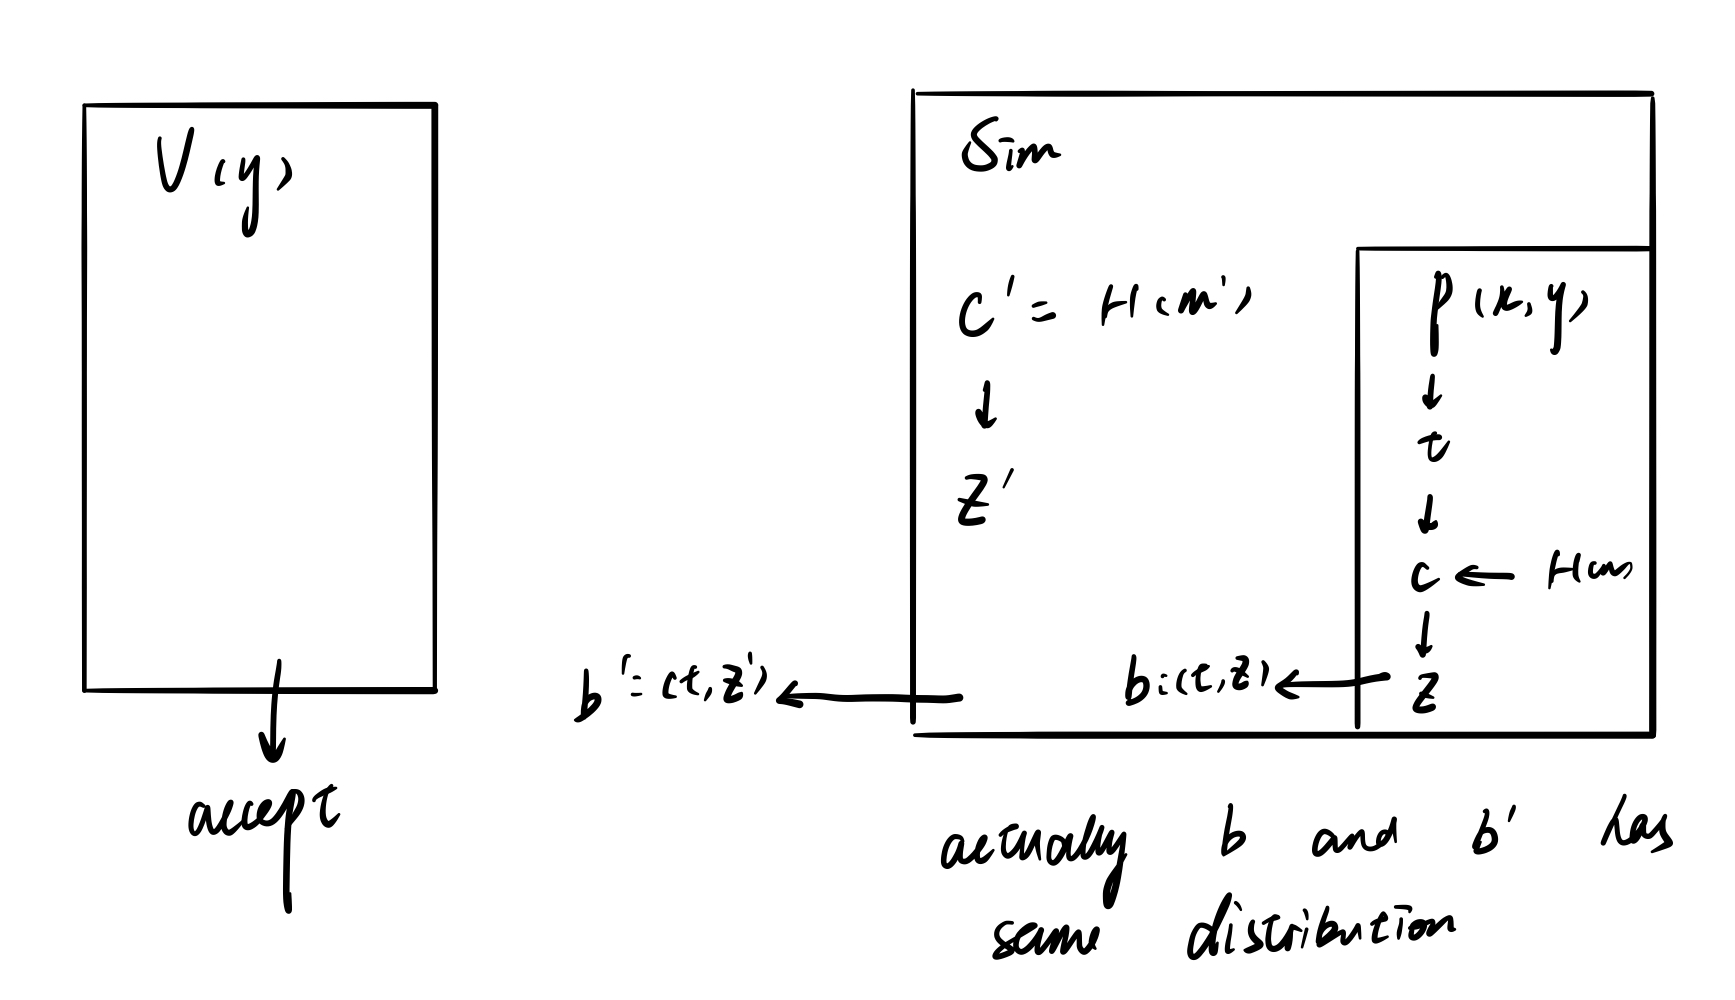 V(y)
accept
Sim
C' = H(m')
↓
z'
b' = (t, z')
P(x, y)
↓
t
↓
c ← H(m)
↓
z
b = (t, z)
actually b and b' has
same distribution